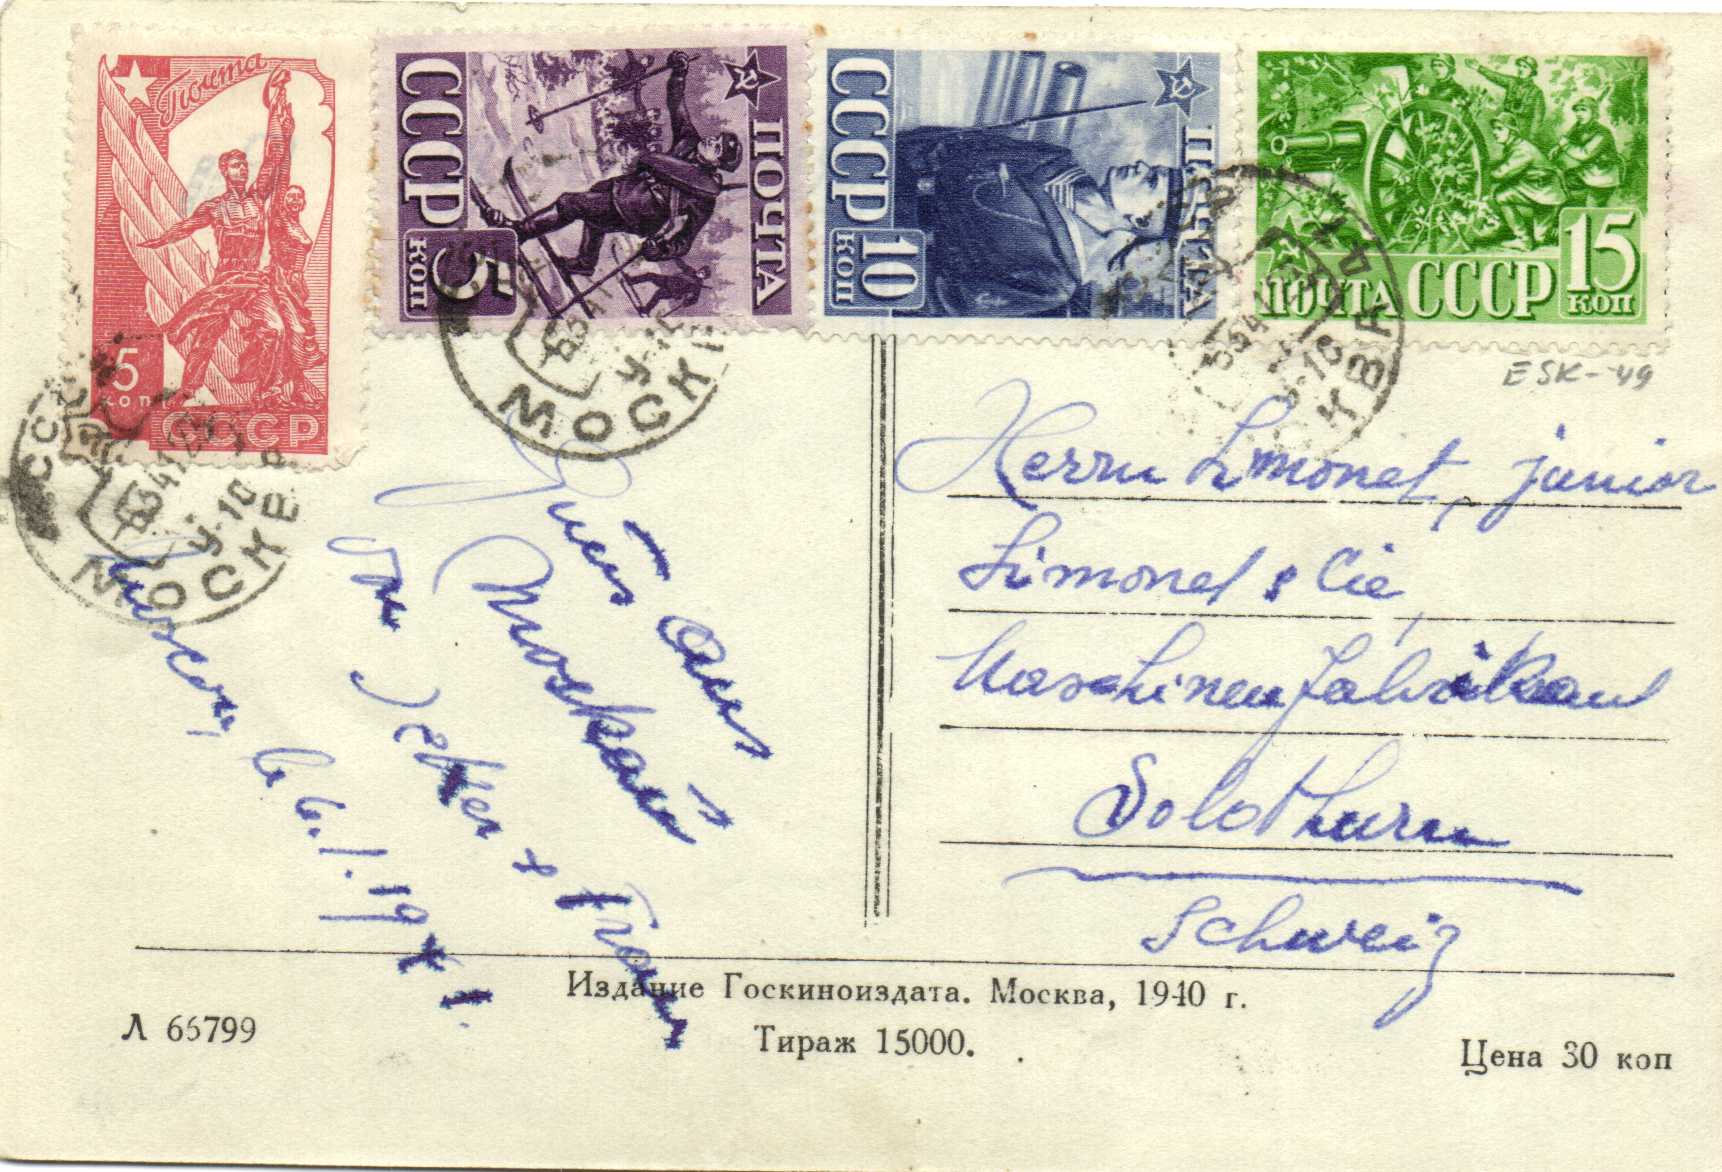 Почта
5
коп
СССР
СССР
ПОЧТА
5
коп
СССР
ПОЧТА
10
коп
ПОЧТА СССР
15
коп
МОСКВА
МОСК
МОСКВА
ESK-49
Herrn Limonet, junior
Limonet & Cie
Maschinenfabrikant
Solothurn
Schweiz
Gruss aus
Moskau
Издание Госкиноиздата. Москва, 1940 г.
Л 66799
Тираж 15000.
Цена 30 коп